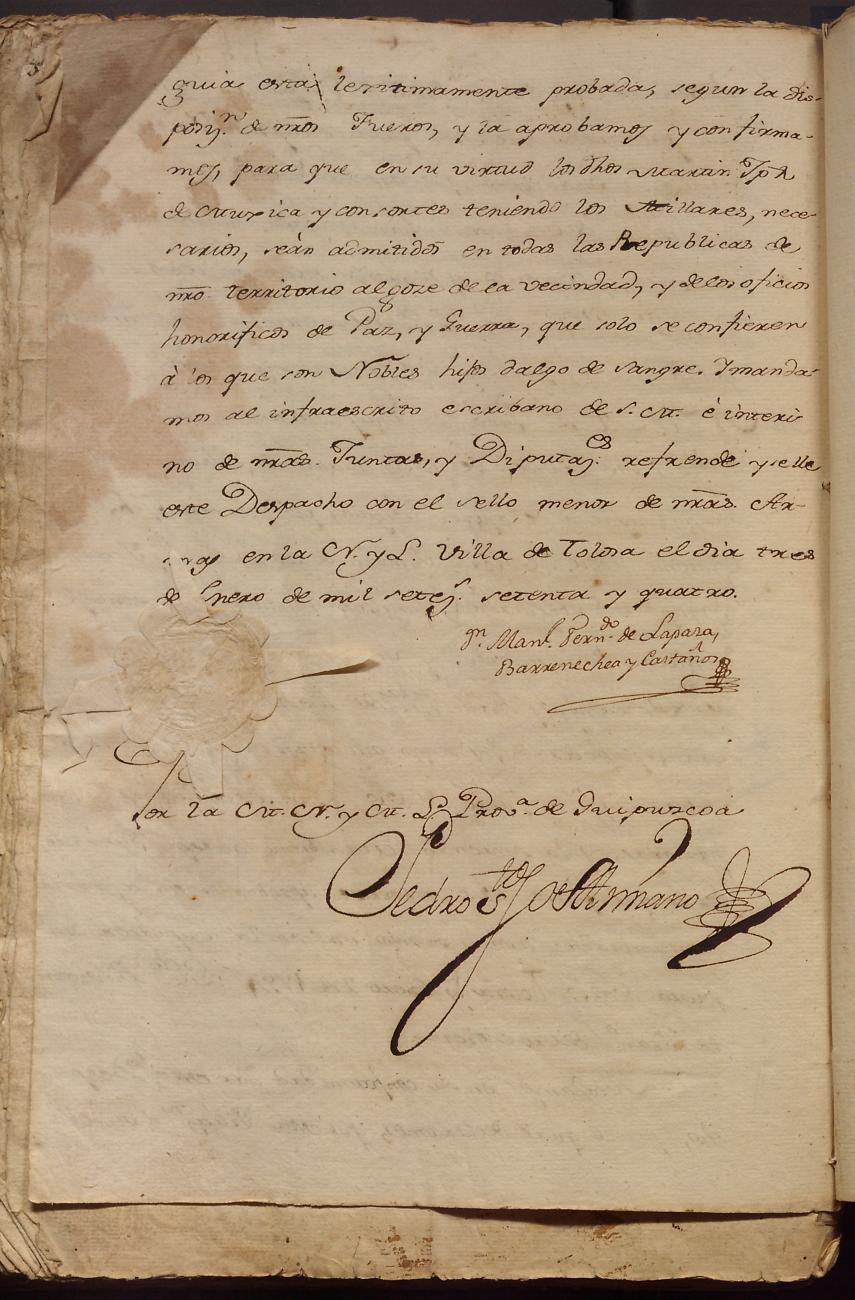 guia esta legitimamente probada, segun la dis-
posiz.n de nr̄os Fueros, y la aprobamos y confirma-
mos, para que en su virtud los dhos Martin Jph
de Muxica y consortes teniendo los Millares, nece-
sarios, seàn admitidos en todas las Republicas de
nr̄o territorio al goze de la vecindad, y de los oficios
honorificos de Paz, y Guerra, que solo se confieren
à los que son Nobles hijos dalgo de sangre. Y manda-
mos al infraescrito escribano de S. M. è interi
no de nr̄as. Juntas, y Diputaz.es refrende y selle
este Despacho con el sello menor de nr̄as. Ar-
mas en la N. y L. Villa de Tolosa el dia tres
de Enero de mil setez.s setenta y quatro.
Dn. Man.l Fern.do de Lapaza,
Barrenechea y Castaños
Por la M. N. y M. L. Prov.a de Guipuzcoa
Pedro